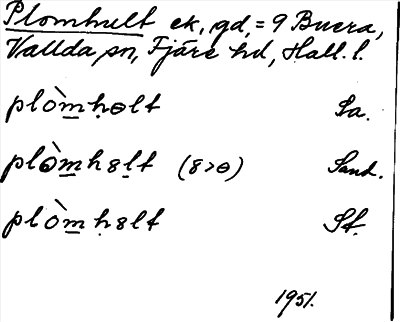 Plomhult ek, gd, = 9 Buera,
Vallda sn, Fjäre hd, Hall. l.
plòm̲ḥɵlt Sa.
plòm̲h8l̲t (8>ɵ) Sand.
plòm̲ḥ8lt St.
1951.